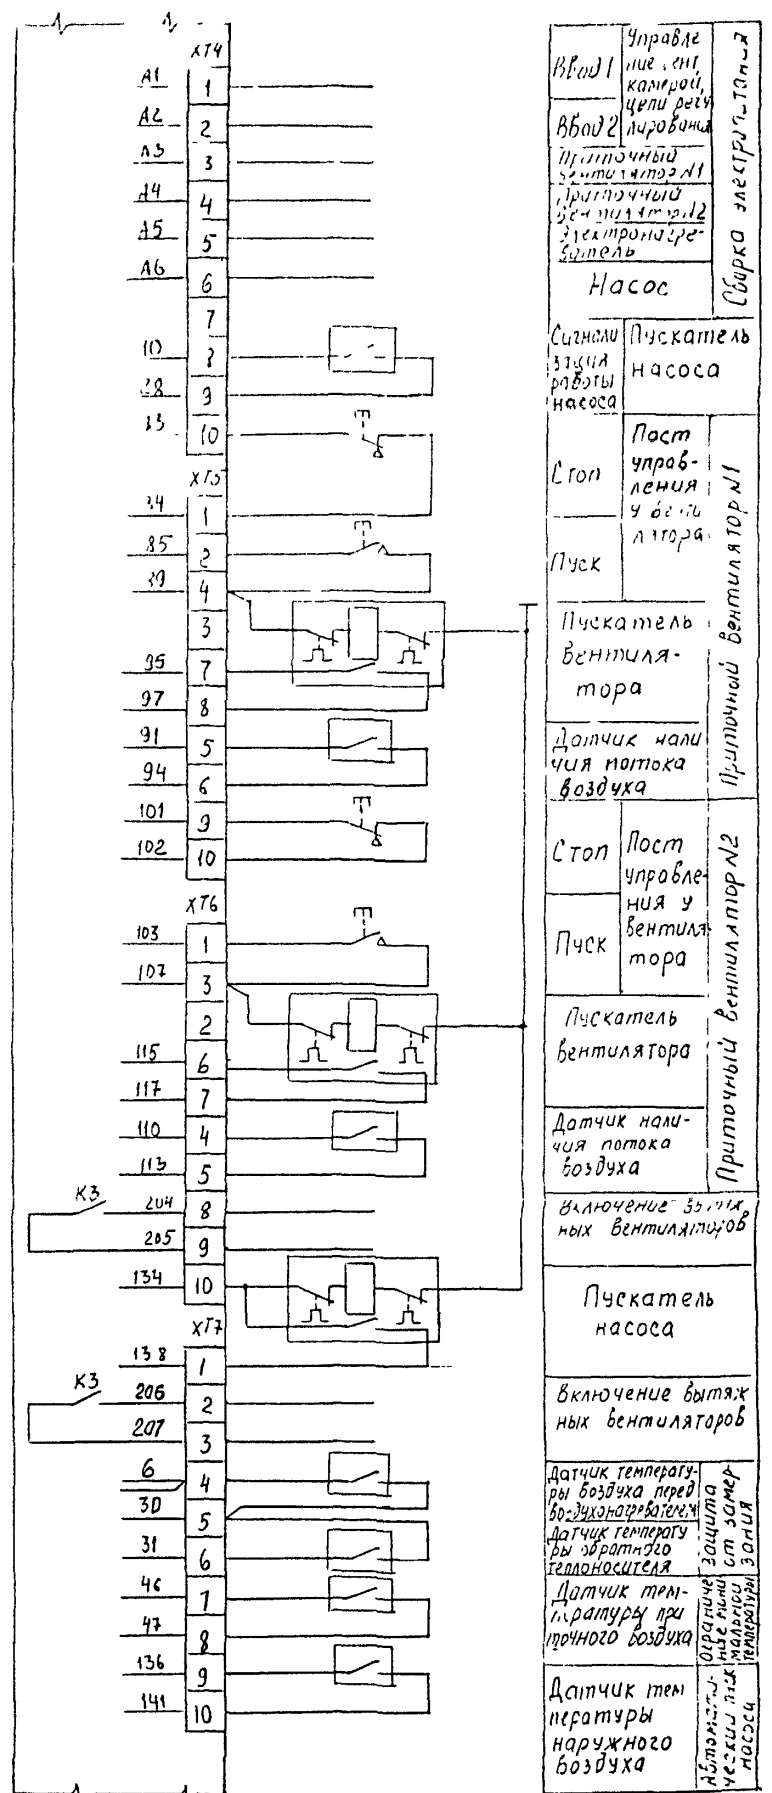 ХТ4
А1
1
А2
2
А3
3
А4
4
А5
5
А6
6
7
8
9
10
ХТ5
1
85
2
4
3
95
7
97
8
91
5
94
6
101
9
102
10
ХТ6
103
1
107
3
2
115
6
117
7
110
4
113
5
К3
204
8
205
9
134
10
ХТ7
138
1
К3
206
2
207
3
6
4
30
5
31
6
46
7
47
8
136
9
141
10
Ввод 1
Ввод 2
Управле
камерой,
цепи регу
лирования
Приточный
вентилятор N1
Приточный
вентилятор N2
Электронагре-
ватель
Насос
Сборка электропитания
Сигнали
зация
работы
насоса
Пускатель
насоса
Стоп
Пуск
Пост
управ-
ления
у венти
лятора
Пускатель
вентиля-
тора
Датчик нали
чия потока
воздуха
Приточный вентилятор N1
Стоп
Пуск
Пост
управле-
ния у
вентиля-
тора
Пускатель
вентилятора
Датчик нали-
чия потока
воздуха
Приточный вентилятор N2
Включение вытяж
ных вентиляторов
Пускатель
насоса
Включение вытяж
ных вентиляторов
Датчик температу-
ры воздуха перед
воздухонагревателем
Датчик температу
ры обратного
теплоносителя
Защита
от замер
зания
Датчик тем-
пературы при
точного воздуха
Ограниче
ние мини
мальной
температуры
Датчик тем
пературы
наружного
воздуха
Автомати-
ческий пуск
насоса